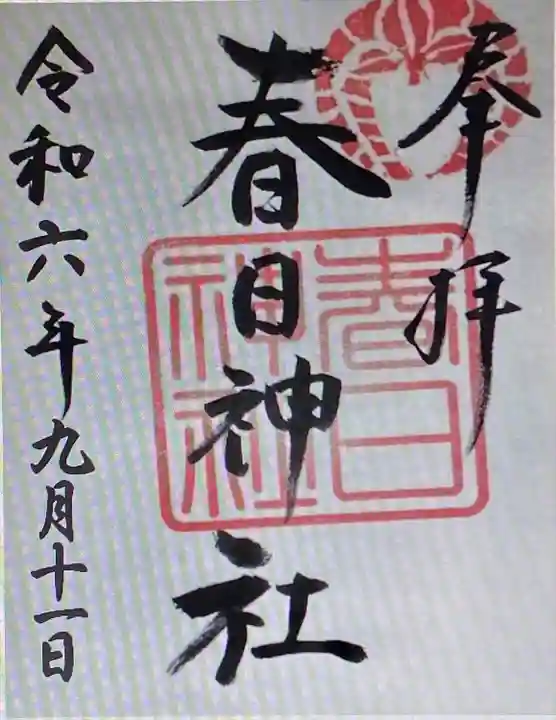 奉拝
春日神社
春日
神社
令和六年九月十一日